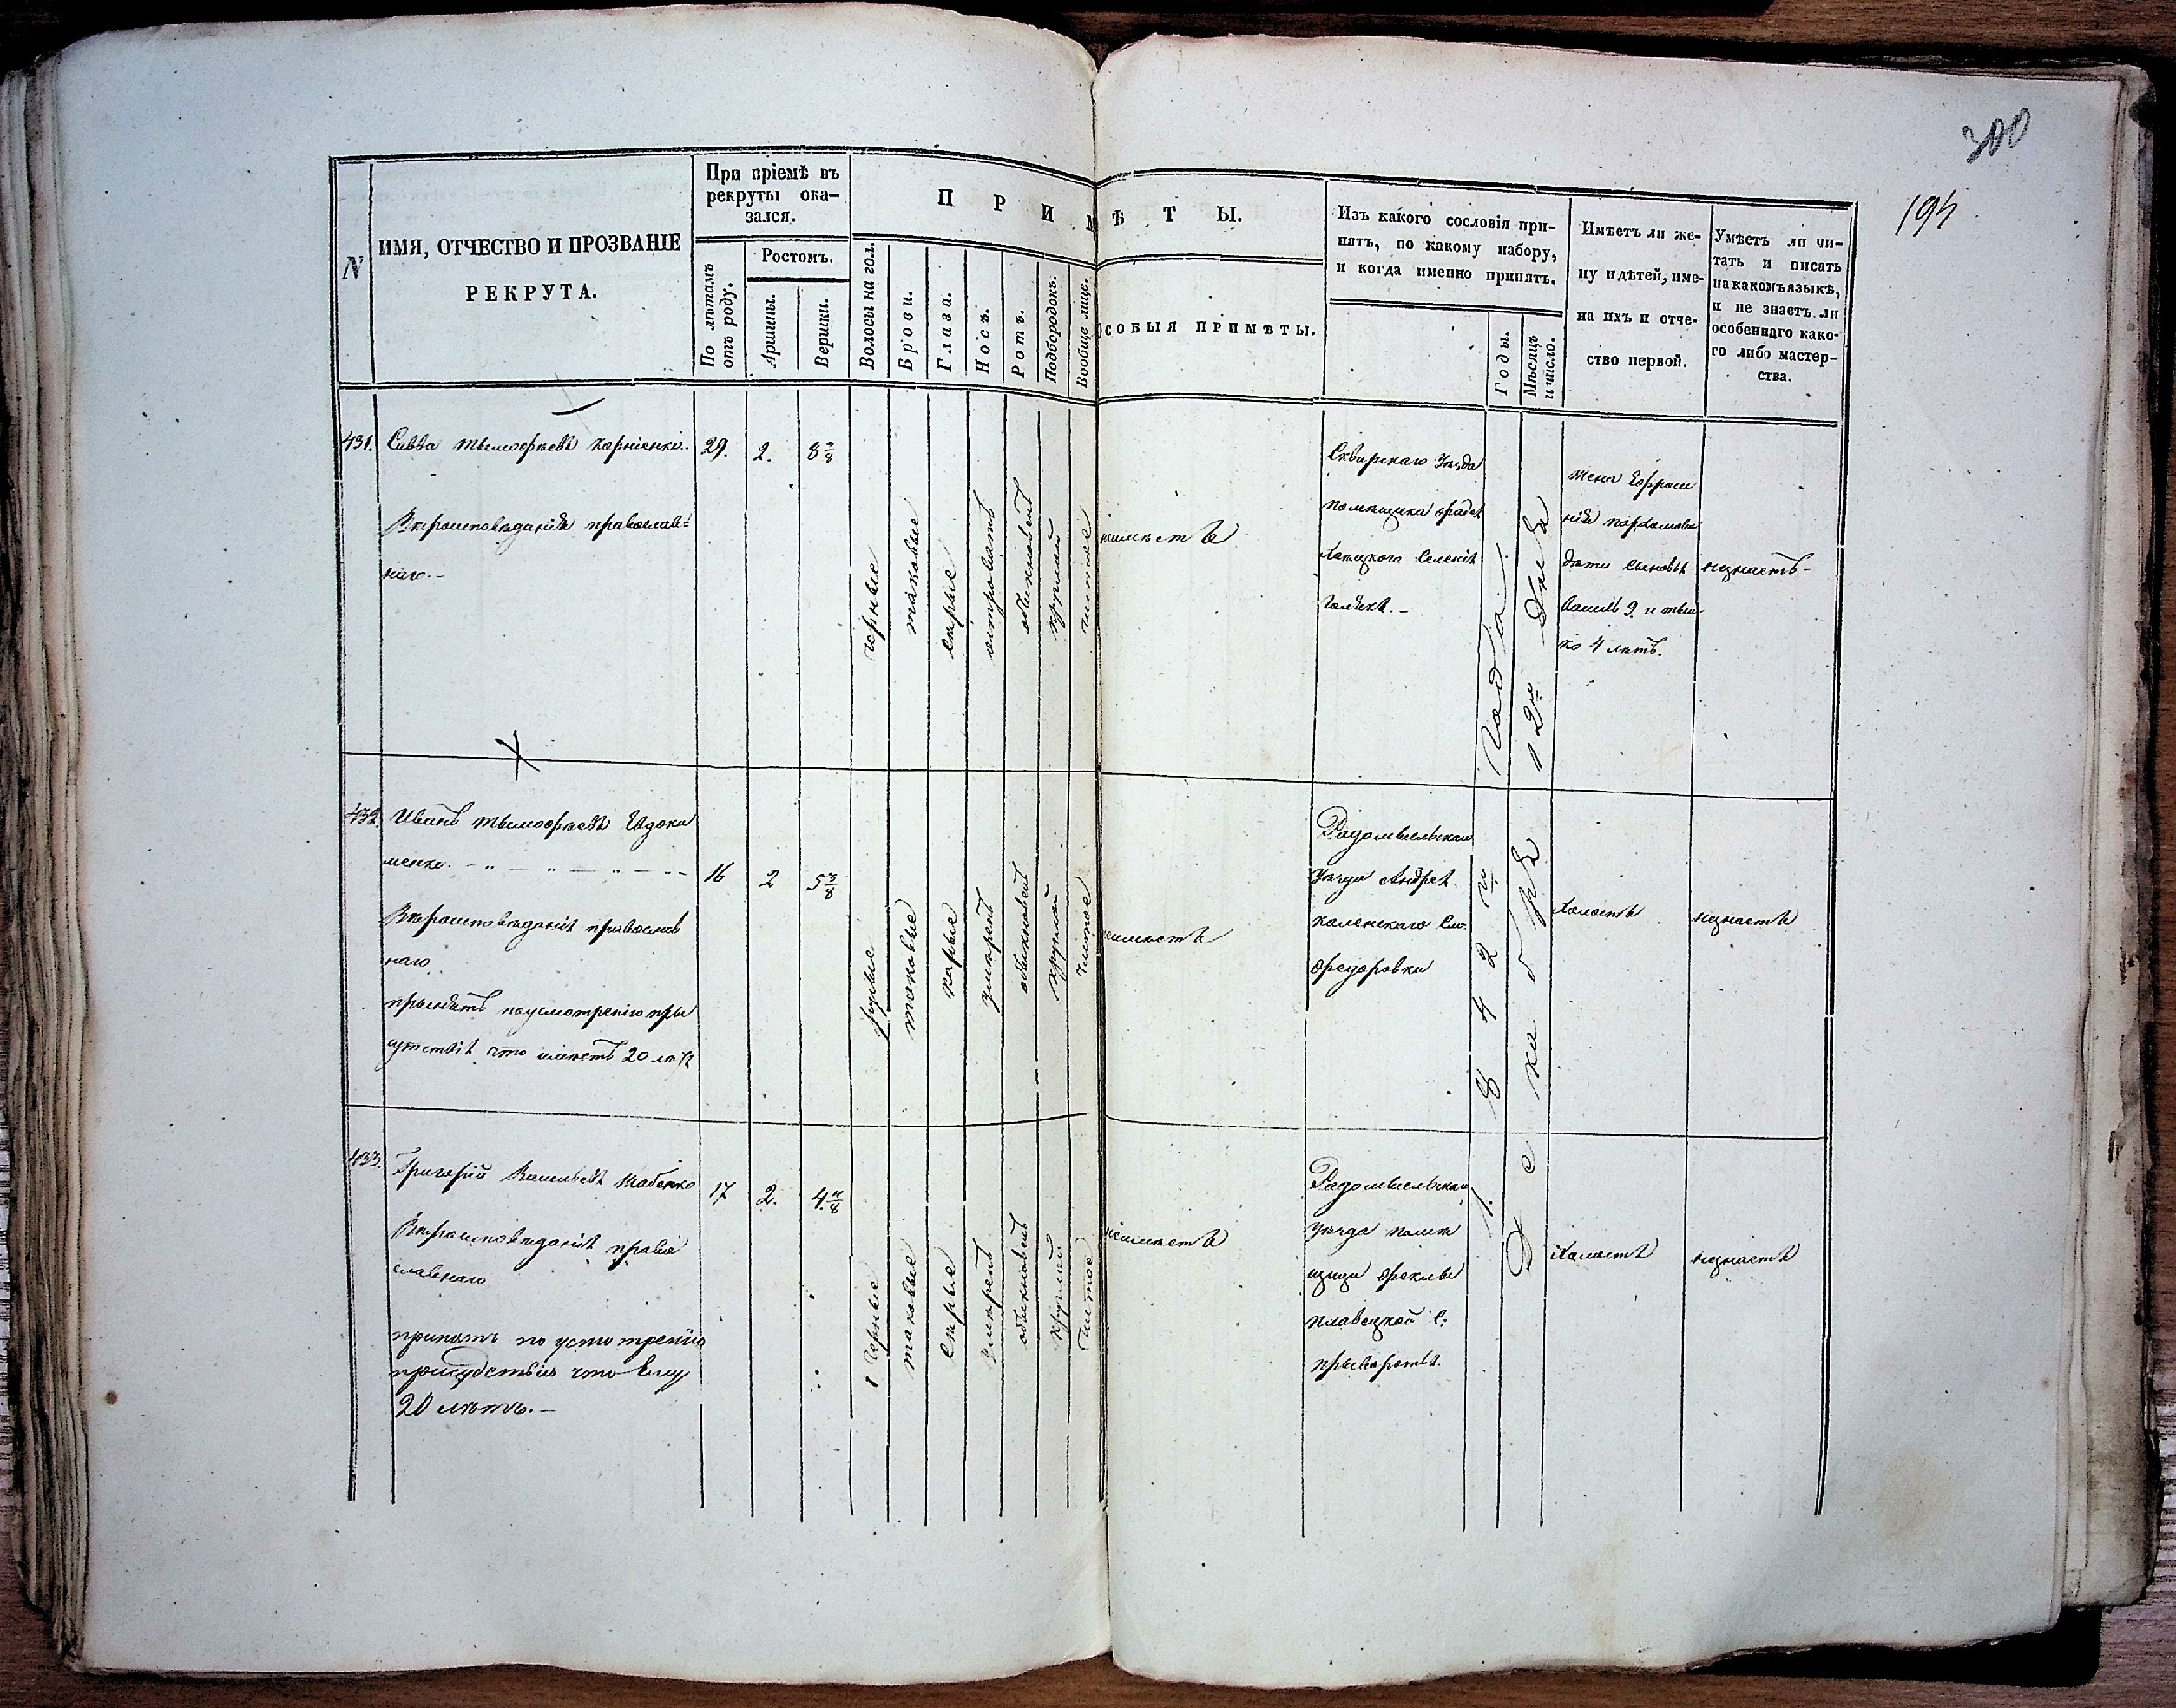 300
194
N
ИМЯ, ОТЧЕСТВО И ПРОЗВАНІЕ
РЕКРУТА.
При пріемѣ въ
рекруты ока-
зался.
По лѣтамъ
отъ роду.
Ростомъ.
Аршины.
Вершки.
ПРИМѢТЫ.
Волосы на гол.
Брови.
Глаза.
Носъ.
Ротъ.
Подбородокъ.
Вообще лице.
ОСОБЫЯ ПРИМѢТЫ.
Изъ какого сословія при-
нятъ, по какому набору,
и когда именно принятъ.
Годы.
Мѣсяцъ
и число.
Имѣетъ ли же-
ну и дѣтей, име-
на ихъ и отче-
ство первой.
Умѣетъ ли чи-
тать и писать
на какомъ языкѣ,
и не знаетъ ли
особеннаго како-
го либо мастер-
ства.
431.
Савва Тымофѣевъ Корніенко.
Вѣроисповѣданія православ=
наго.-
29.
2.
8
черные
таковые
сѣрые
островатъ
обыкновенъ
круглый
чистое
неимѣетъ
Сквирскаго Уѣзда
помѣщика
Селенія
1842 Года
Декабря 12 Дня
Жена Ефроси
нія
дѣти сыновья
9 и
ко 4 лѣтъ.
незнаетъ-
432.
Иванъ Тымофѣевъ Евдоки
менко.
Вѣроисповѣданія православ
наго
прынятъ поусмотренію пры
сутствія что имѣетъ 20 лѣтъ
16
2
5 3/8
русые
таковые
карые
умѣренъ
обыкновенъ
круглый
чистое
неимѣетъ
Радомысльскаго
Уѣзда
Федоровки
Холостъ
незнаетъ
433.
Григорій Васильевъ Шабенко
Вѣроисповѣданія право
славнаго
принятъ по усмотренію
присудствія что Ему
20 лѣтъ.-
17
2.
4
черные
таковые
сѣрые
умѣренъ
обыкновенъ
круглый
чистое
неимѣетъ
Радомысльскаго
Уѣзда помѣ
щици Феклы
с.
Холостъ
незнаетъ